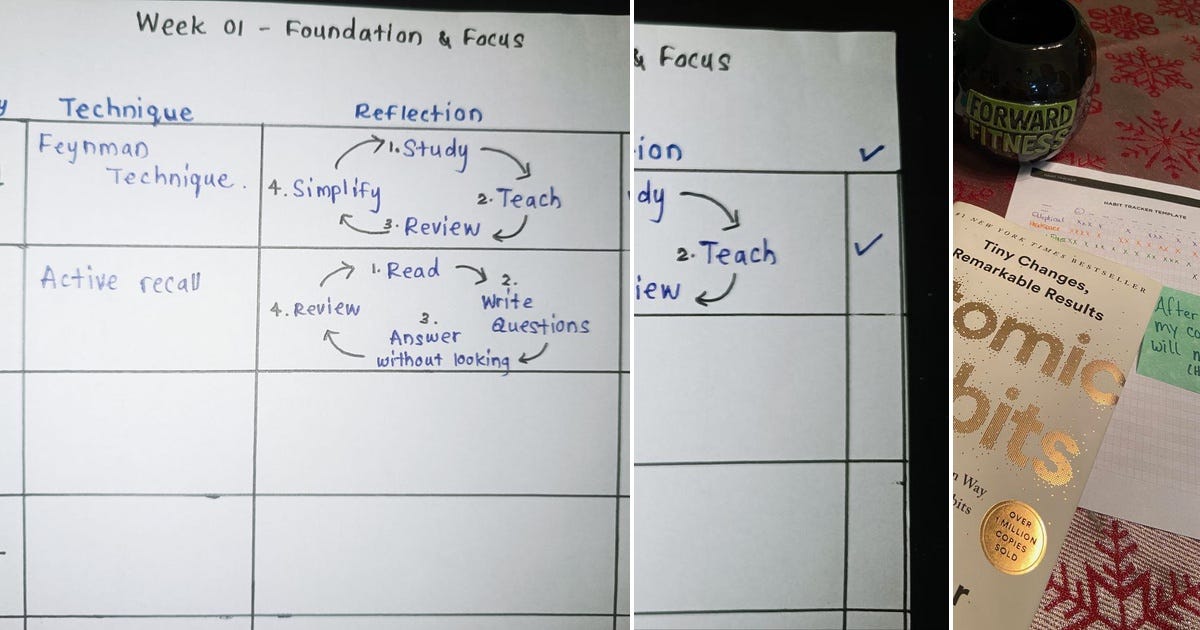 Week 01 - Foundation & Focus
Technique
Reflection
Feynman
Technique.
1. Study
2. Teach
3. Review
4. Simplify
Active recall
1. Read
2.
Write
Questions
3.
Answer
without looking
4. Review
& Focus
ion ✓
dy
2. Teach
✓
iew
FORWARD
FITNESS
HABIT TRACKER TEMPLATE
#1 NEW YORK TIMES BESTSELLER
Tiny Changes,
Remarkable Results
tomic
bits
Way
bits
OVER
1 MILLION
COPIES
SOLD
r
After
my co
will n